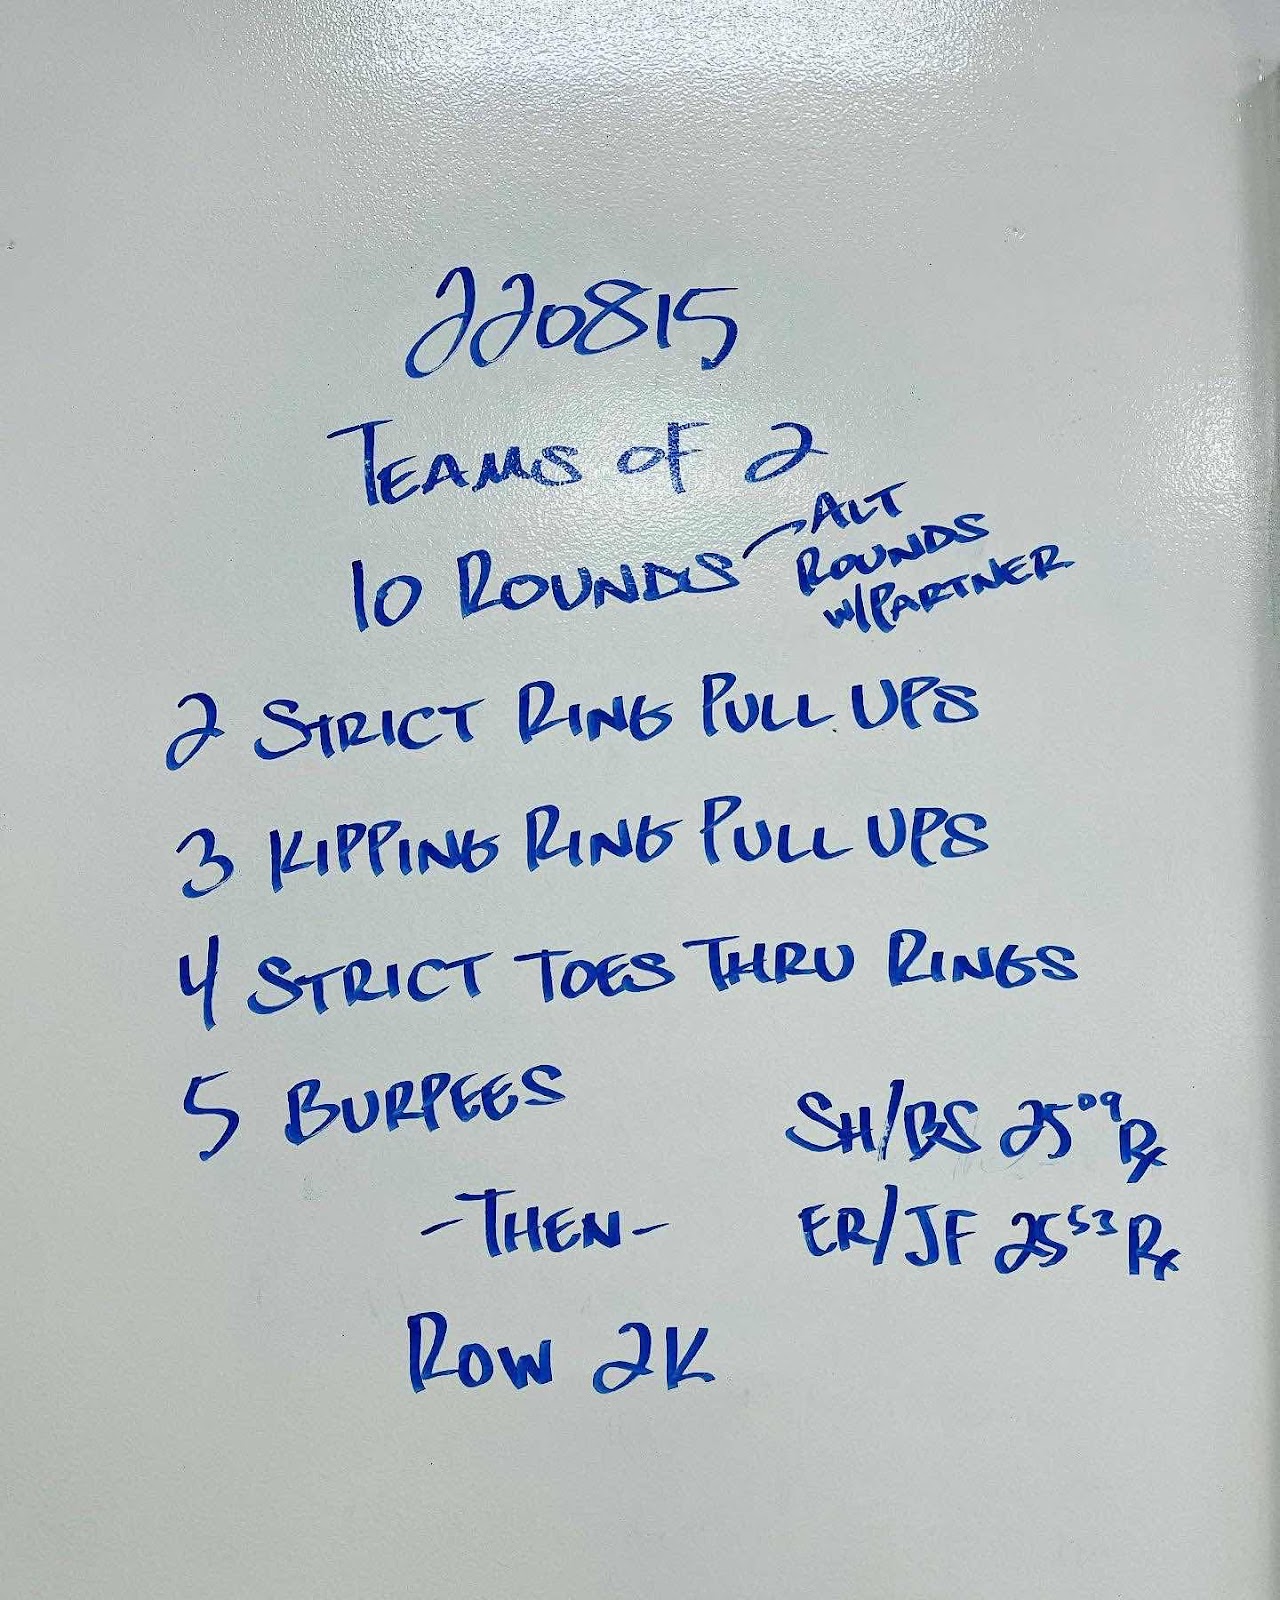 220815
TEAMS OF 2
10 ROUNDS
ALT
ROUNDS
W/PARTNER
2 STRICT RING PULL UPS
3 KIPPING RING PULL UPS
4 STRICT TOES THRU RINGS
5 BURPEES
-THEN-
ROW 2K
SH/BS 25 09 Rx
ER/JF 25 53 Rx